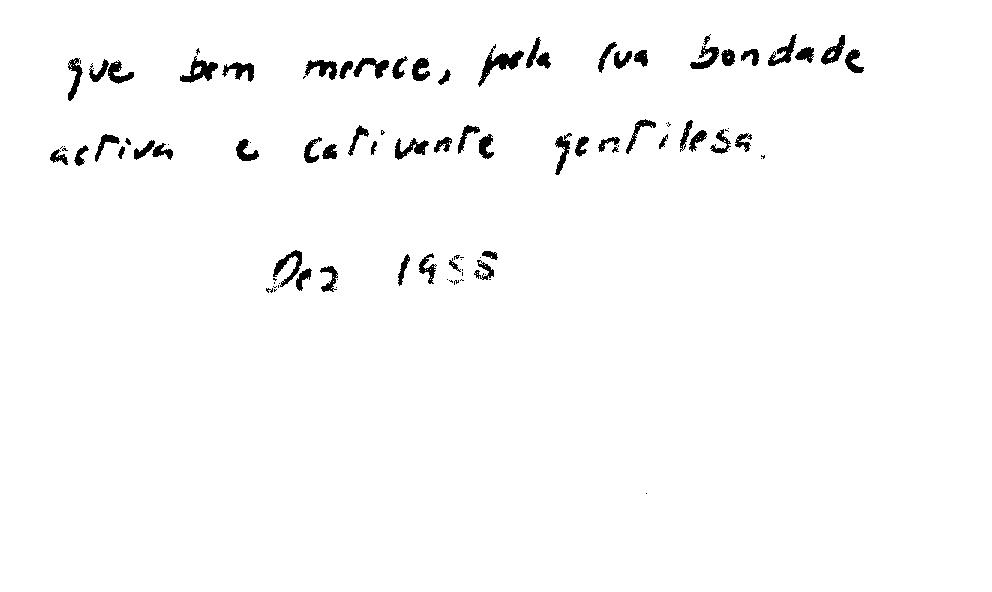 que bem merece, pela sua bondade
activa e cativante gentilesa.
Dez 1955